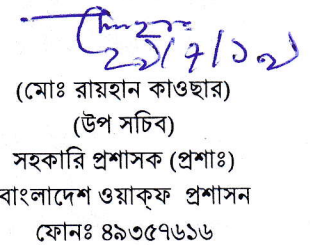 (মোঃ রায়হান কাওছার)
(উপ সচিব)
সহকারি প্রশাসক (প্রশাঃ)
বাংলাদেশ ওয়াক্ফ প্রশাসন
ফোনঃ ৪৯৩৫৭৬১৬